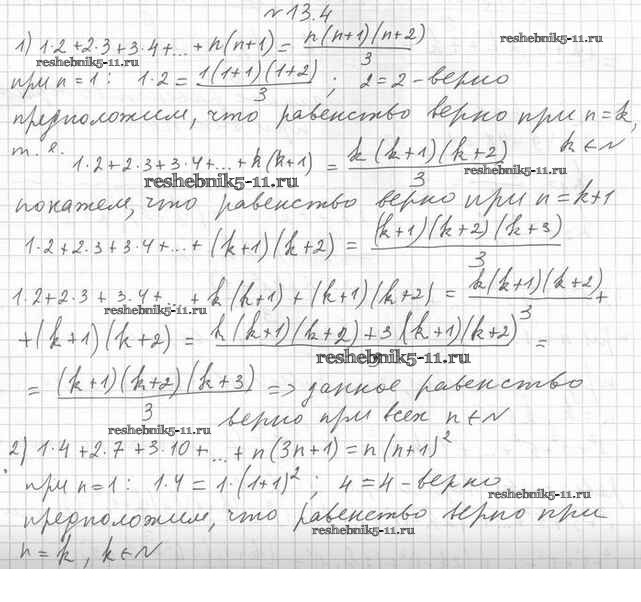 №13.4
reshebnik5-11.ru
1) 1·2+2·3+3·4+...+n(n+1)=n(n+1)(n+2)/3
reshebnik5-11.ru
при n=1: 1·2=1(1+1)(1+2)/3; 2=2-верно
предположим, что равенство верно при n=k,
т.е. 1·2+2·3+3·4+...+k(k+1)=k(k+1)(k+2)/3 k∈N
reshebnik5-11.ru
reshebnik5-11.ru
покажем, что равенство верно при n=k+1
1·2+2·3+3·4+...+(k+1)(k+2)=(k+1)(k+2)(k+3)/3
1·2+2·3+3·4+...+k(k+1)+(k+1)(k+2)=k(k+1)(k+2)/3+
reshebnik5-11.ru
+(k+1)(k+2)=k(k+1)(k+2)+3(k+1)(k+2)/3=
reshebnik5-11.ru
=(k+1)(k+2)(k+3)/3 => данное равенство
верно при всех n∈N
reshebnik5-11.ru
2) 1·4+2·7+3·10+...+n(3n+1)=n(n+1)²
при n=1: 1·4=1·(1+1)²; 4=4-верно
reshebnik5-11.ru
предположим, что равенство верно при
reshebnik5-11.ru
n=k, k∈N